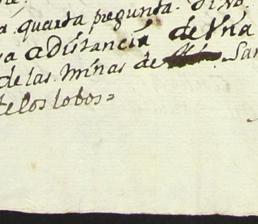 a quarta pregunta. Dixo
a a Distancia de Vna
de las minas de San
te los lobos=